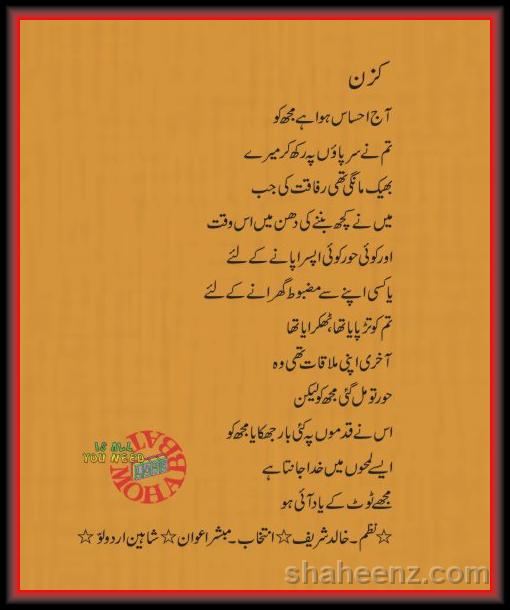 کزن
آج احساس ہوا ہے مجھ کو
تم نے سر پاؤں پہ رکھ کر میرے
بھیک مانگی تھی رفاقت کی جب
میں نے کچھ بننے کی دھن میں اس وقت
اور کوئی حور کوئی اپسرا پانے کے لئے
یا کسی اپنے سے مضبوط گھرانے کے لئے
تم کو تڑپایا تھا، ٹھکرایا تھا
آخری اپنی ملاقات تھی وہ
حور تو مل گئی مجھ کو لیکن
اس نے قدموں پہ کئی بار جھکایا مجھ کو
ایسے لمحوں میں خدا جانتا ہے
مجھے ٹوٹ کے یاد آئی ہو
☆ نظم۔ خالد شریف ☆ انتخاب۔ مبشر اعوان ☆ شاہین اردو لوّ ☆
IS ALL
YOU NEED
MOHABBAT
shaheenz.com